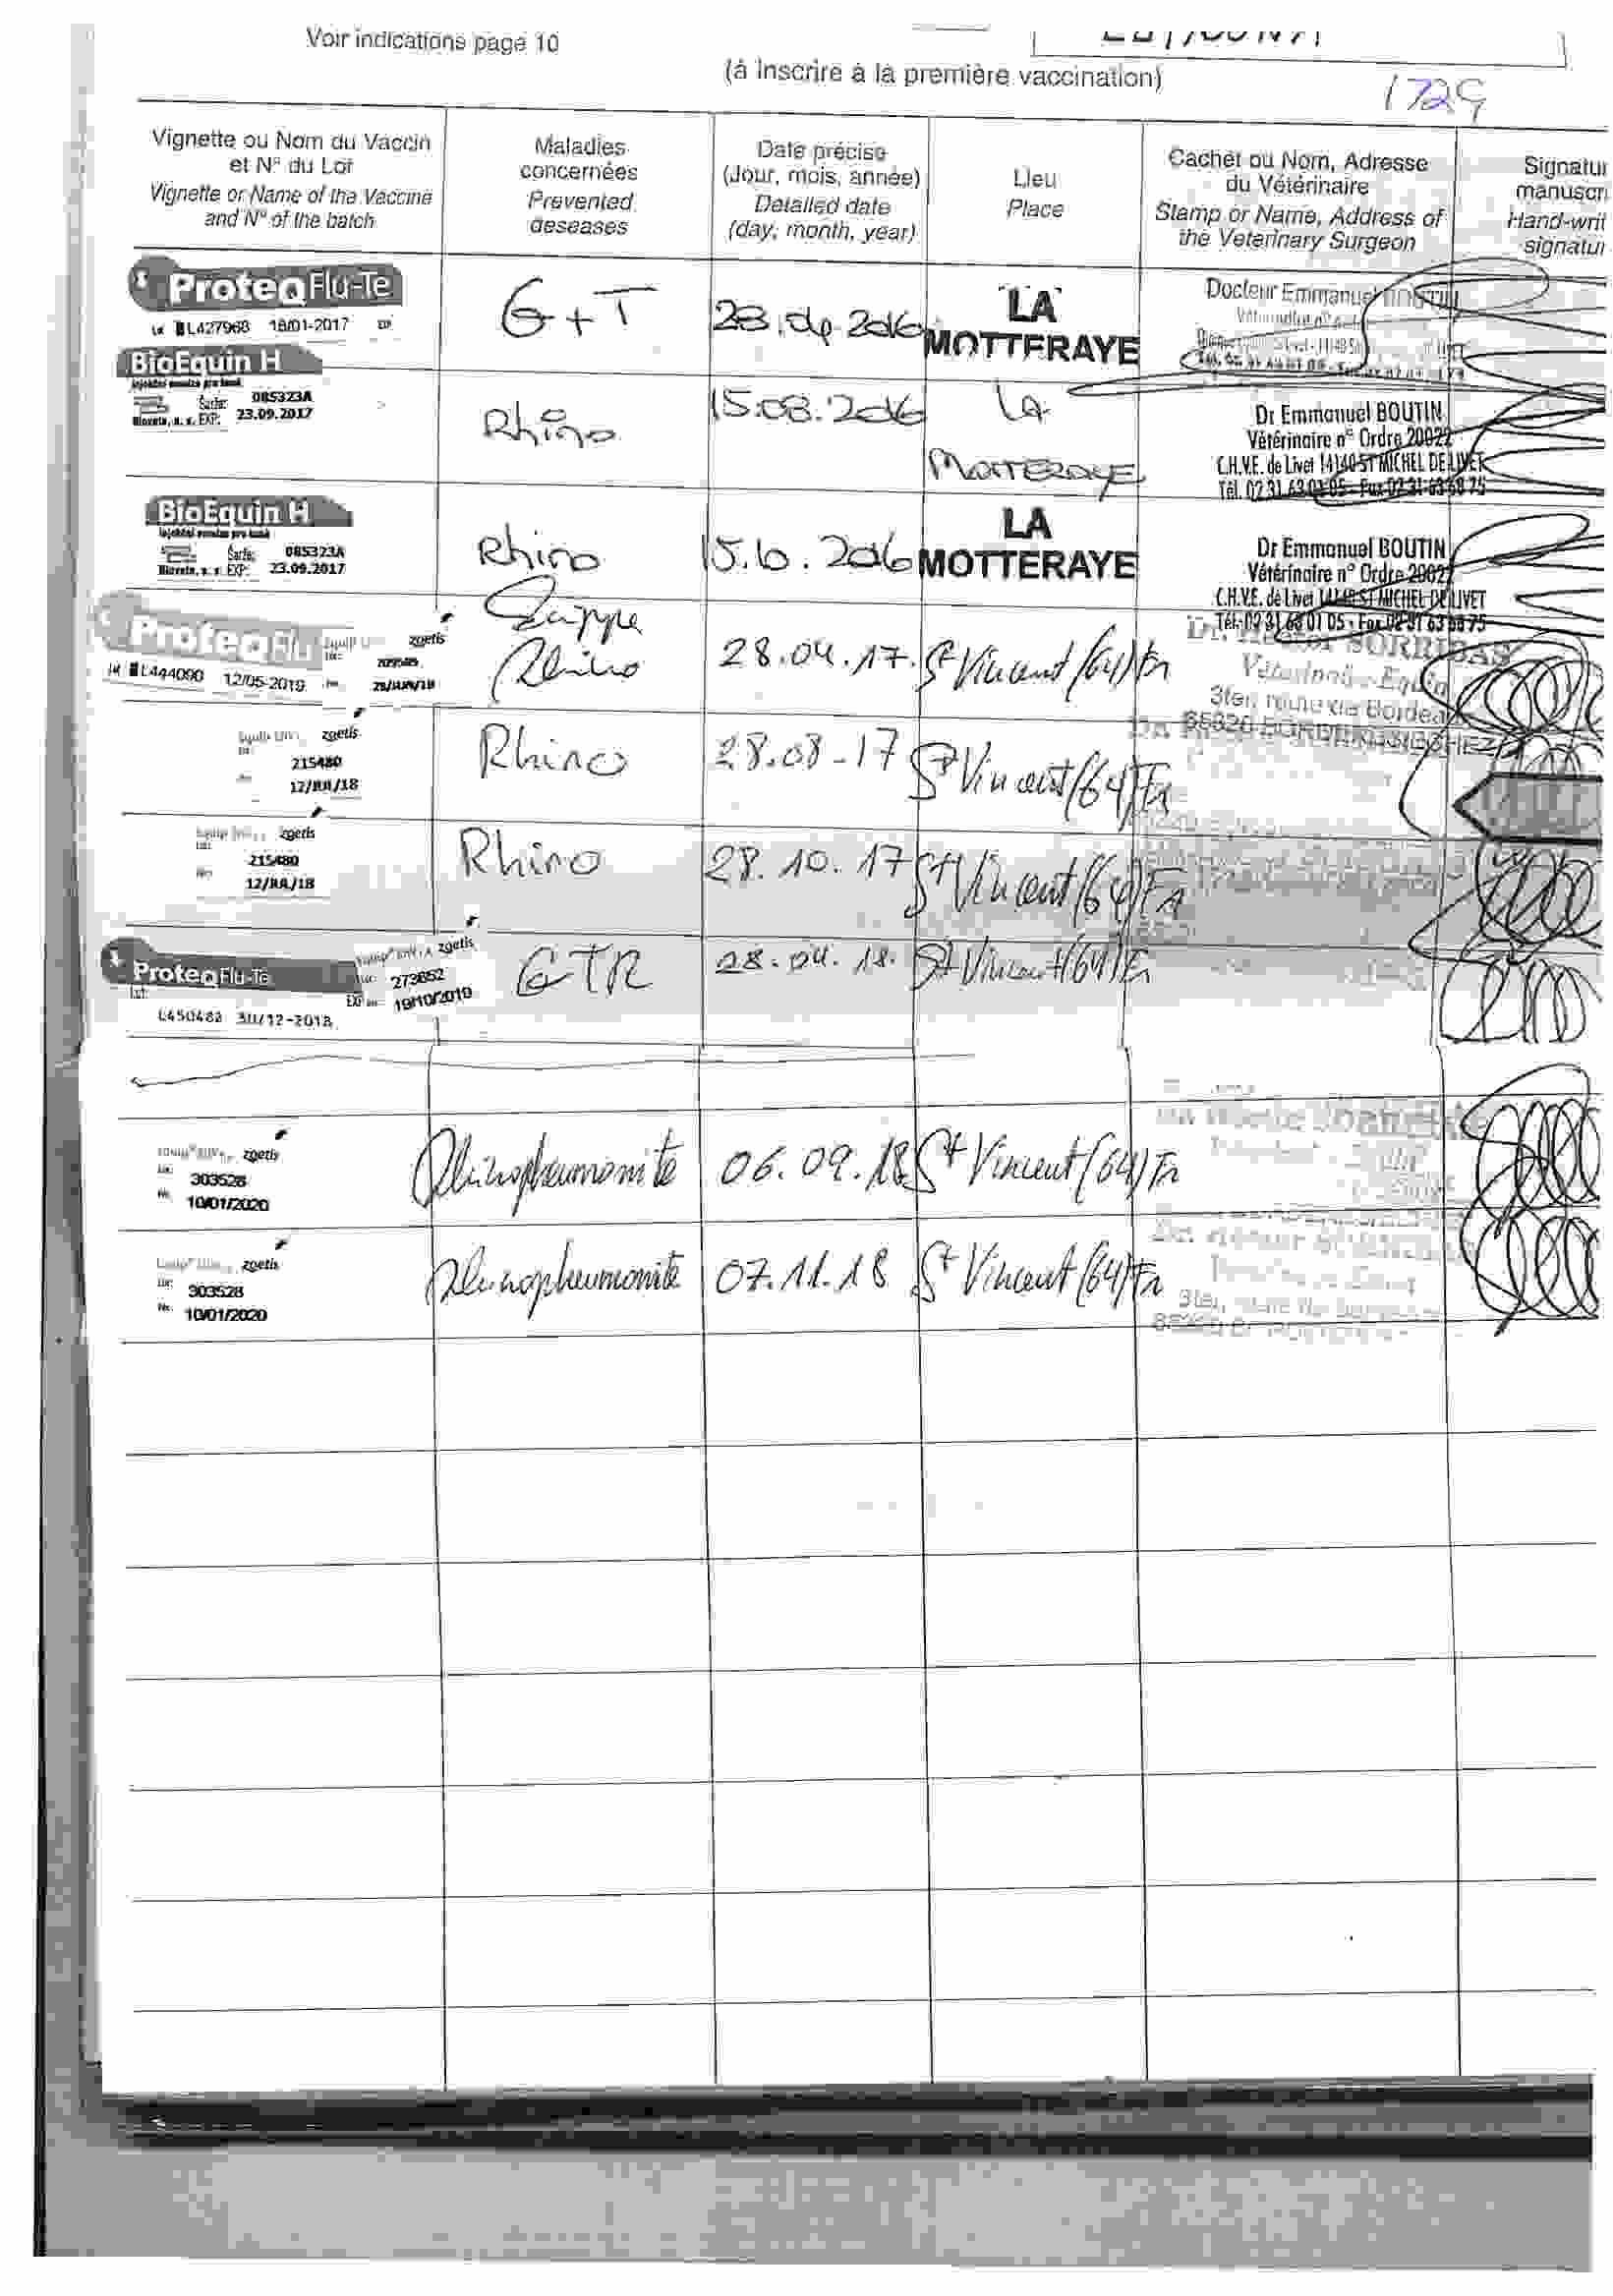 Voir indications page 10
(à inscrire à la première vaccination)
1729
Vignette ou Nom du Vaccin
et N° du Lot
Vignette or Name of the Vaccine
and N° of the batch
Maladies
concernées
Prevented
deseases
Date précise
(Jour, mois, année)
Detailed date
(day, month, year)
Lieu
Place
Cachet ou Nom, Adresse
du Vétérinaire
Stamp or Name, Address of
the Veterinary Surgeon
Signatur
manuscri
Hand-writ
signatur
ProteqFlu-Te
Lot L427968 18/01-2017 EXP
G+T
28.04.2016
LA
MOTTERAYE
Docteur Emmanuel BOUTIN
BioEquin H
Šarže: 085323A
Bioveta, a. s. EXP: 23.09.2017
Rhino
15.08.2016
LA
MOTTERAYE
Dr Emmanuel BOUTIN
Vétérinaire n° Ordre 20022
C.H.V.E. de Livet 14140 ST MICHEL DE LIVET
Tél. 02 31 63 01 05 - Fax 02 31 63 68 75
BioEquin H
Šarže: 085323A
Bioveta, a. s. EXP: 23.09.2017
Rhino
15.10.2016
LA
MOTTERAYE
Dr Emmanuel BOUTIN
Vétérinaire n° Ordre 20022
C.H.V.E. de Livet 14140 ST MICHEL DE LIVET
Tél. 02 31 63 01 05 - Fax 02 31 63 68 75
ProteqFlu
Lot L444090 12/05-2019
zoetis
Grippe
Rhino
28.04.17.
St Vincent (64) Fr
Vétérinaire Equin
3ter, route de Bordeaux
zoetis
215480
12/JUL/18
Rhino
28.08-17
St Vincent (64) Fr
zoetis
215480
12/JUL/18
Rhino
28.10.17
St Vincent (64) Fr
ProteqFlu-Te
Lot:
L450482 30/12-2018
zoetis
273652
EXP 19/10/2019
GTR
28.04.18.
St Vincent (64) Fr
zoetis
303528
10/01/2020
Rhinopneumonite
06.09.18
St Vincent (64) Fr
zoetis
303528
10/01/2020
Rhinopneumonite
07.11.18
St Vincent (64) Fr